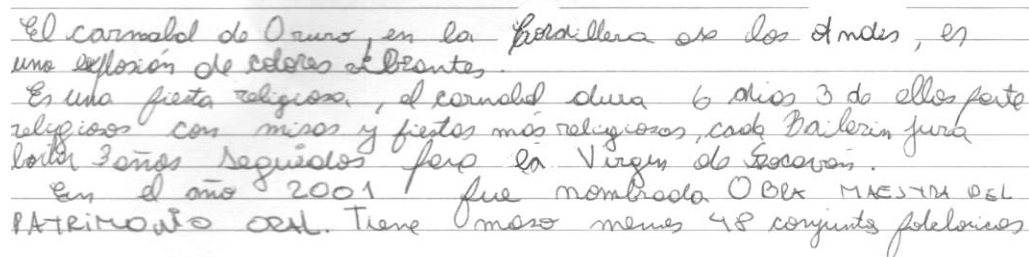 El carnabal de Oruro, en la Cordillera de los Andes, es
una explosión de colores vibrantes.
Es una fiesta religiosa, el carnabal dura 6 dias 3 de ellos parte
religiosos con misas y fiestas más religiosas, cada Bailarin jura
bailar 3 años seguidos para la Virgen de Socavón.
En el año 2001 fue nombrada OBRA MAESTRA DEL
PATRIMONIO ORAL. Tiene maso menos 48 conjuntos folcloricos